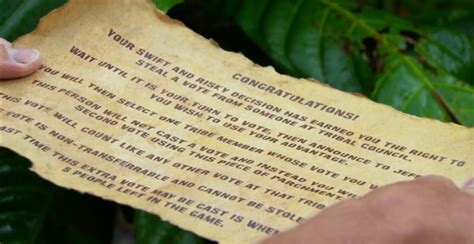 CONGRATULATIONS!
YOUR SWIFT AND RISKY DECISION HAS EARNED YOU THE RIGHT TO
STEAL A VOTE FROM SOMEONE AT TRIBAL COUNCIL.
WAIT UNTIL IT IS YOUR TURN TO VOTE, THEN ANNOUNCE TO JEFF
YOU WISH TO USE YOUR ADVANTAGE.
YOU WILL THEN SELECT ONE TRIBE MEMBER WHOSE VOTE YOU
THIS PERSON WILL NOT CAST A VOTE AND INSTEAD YOU WILL
SECOND VOTE USING THIS PIECE OF PARCHMENT
THIS VOTE WILL COUNT LIKE ANY OTHER VOTE AT THAT TRIBAL
VOTE IS NON-TRANSFERRABLE AND CANNOT BE STOLEN
LAST TIME THIS EXTRA VOTE MAY BE CAST IS WHEN
5 PEOPLE LEFT IN THE GAME.